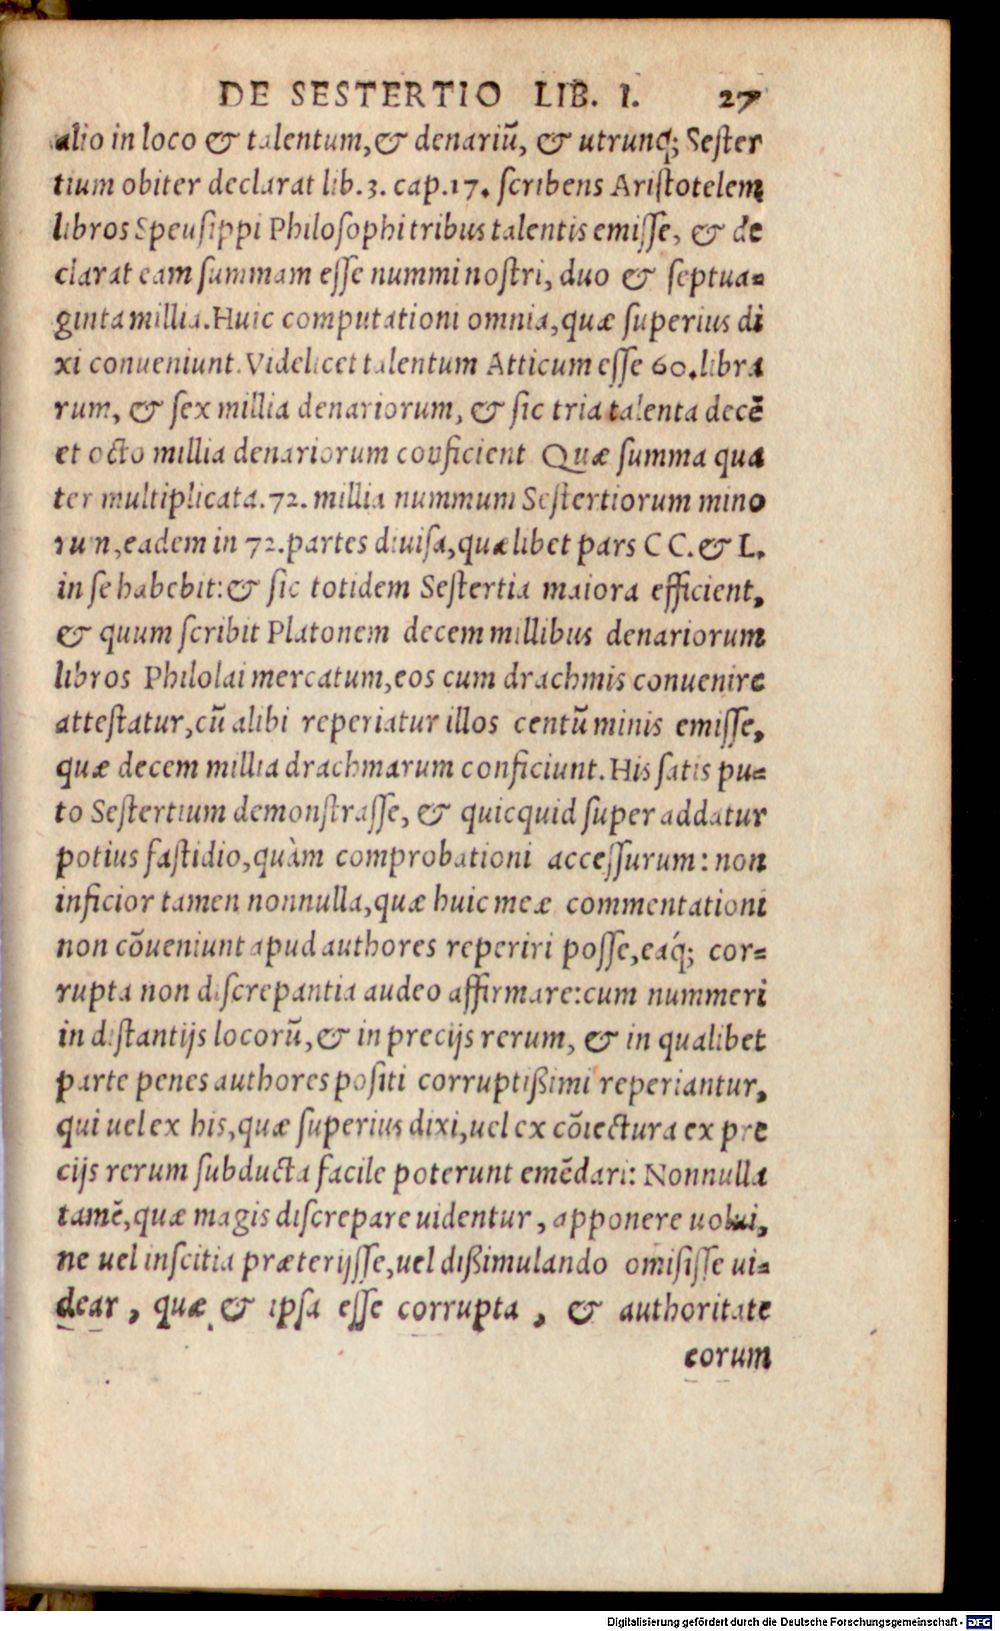 DE SESTERTIO LIB. I. 27
alio in loco & talentum, & denariũ, & utrunq; Sester
tium obiter declarat lib. 3. cap. 17. scribens Aristotelem
libros Speusippi Philosophi tribus talentis emisse, & de
clarat eam summam esse nummi nostri, duo & septua=
ginta millia. Huic computationi omnia, quæ superius di
xi conueniunt. Videlicet talentum Atticum esse 60. libra
rum, & sex millia denariorum, & sic tria talenta decē
et octo millia denariorum conficient Quæ summa qua
ter multiplicata. 72. millia nummum Sestertiorum mino
rum, eadem in 72. partes diuisa, quælibet pars CC. & L.
in se habebit: & sic totidem Sestertia maiora efficient,
& quum scribit Platonem decem millibus denariorum
libros Philolai mercatum, eos cum drachmis conuenire
attestatur, cũ alibi reperiatur illos centũ minis emisse,
quæ decem millia drachmarum conficiunt. His satis pu=
to Sestertium demonstrasse, & quicquid super addatur
potius fastidio, quàm comprobationi accessurum: non
inficior tamen nonnulla, quæ huic meæ commentationi
non cõueniunt apud authores reperiri posse, eaq́; cor=
rupta non discrepantia audeo affirmare: cum nummeri
in distantijs locorũ, & in precijs rerum, & in qualibet
parte penes authores positi corruptißimi reperiantur,
qui uel ex his, quæ superius dixi, uel ex cõiectura ex pre
cijs rerum subducta facile poterunt emēdari: Nonnulla
tamē, quæ magis discrepare uidentur, apponere uolui,
ne uel inscitia præterijsse, uel dißimulando omisisse ui=
dear, quæ & ipsa esse corrupta, & authoritate
eorum
Digitalisierung gefördert durch die Deutsche Forschungsgemeinschaft - DFG